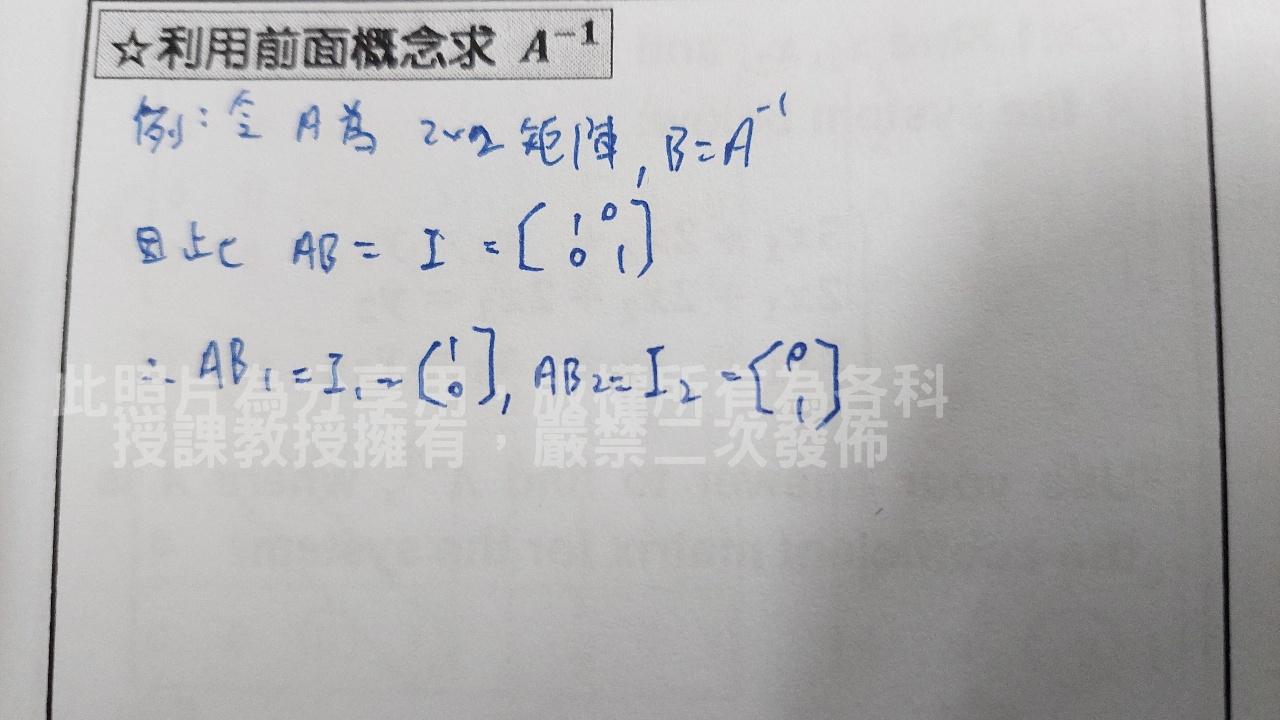 ☆利用前面概念求 A⁻¹
例:令 A為 2×2 矩陣, B=A⁻¹
因此 AB = I = [1 0
0 1]
∴ AB₁ = I₁ = [1
0], AB₂ = I₂ = [0
1]
此照片為分享用，版權所有為各科
授課教授擁有，嚴禁二次發佈